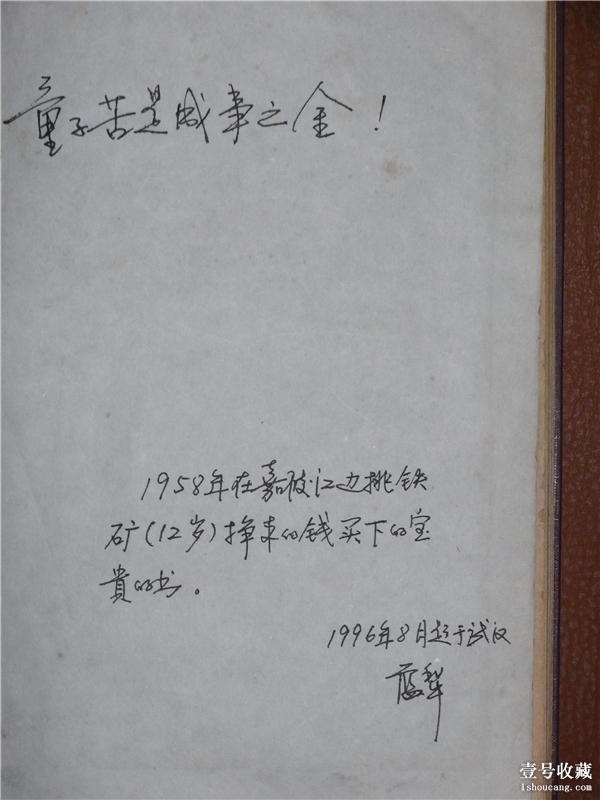 童子苦是成事之金！
1958年在嘉陵江边挑铁
矿(12岁)挣来的钱买下的宝
貴的书。
1996年8月于武汉
壹号收藏
1shoucang.com